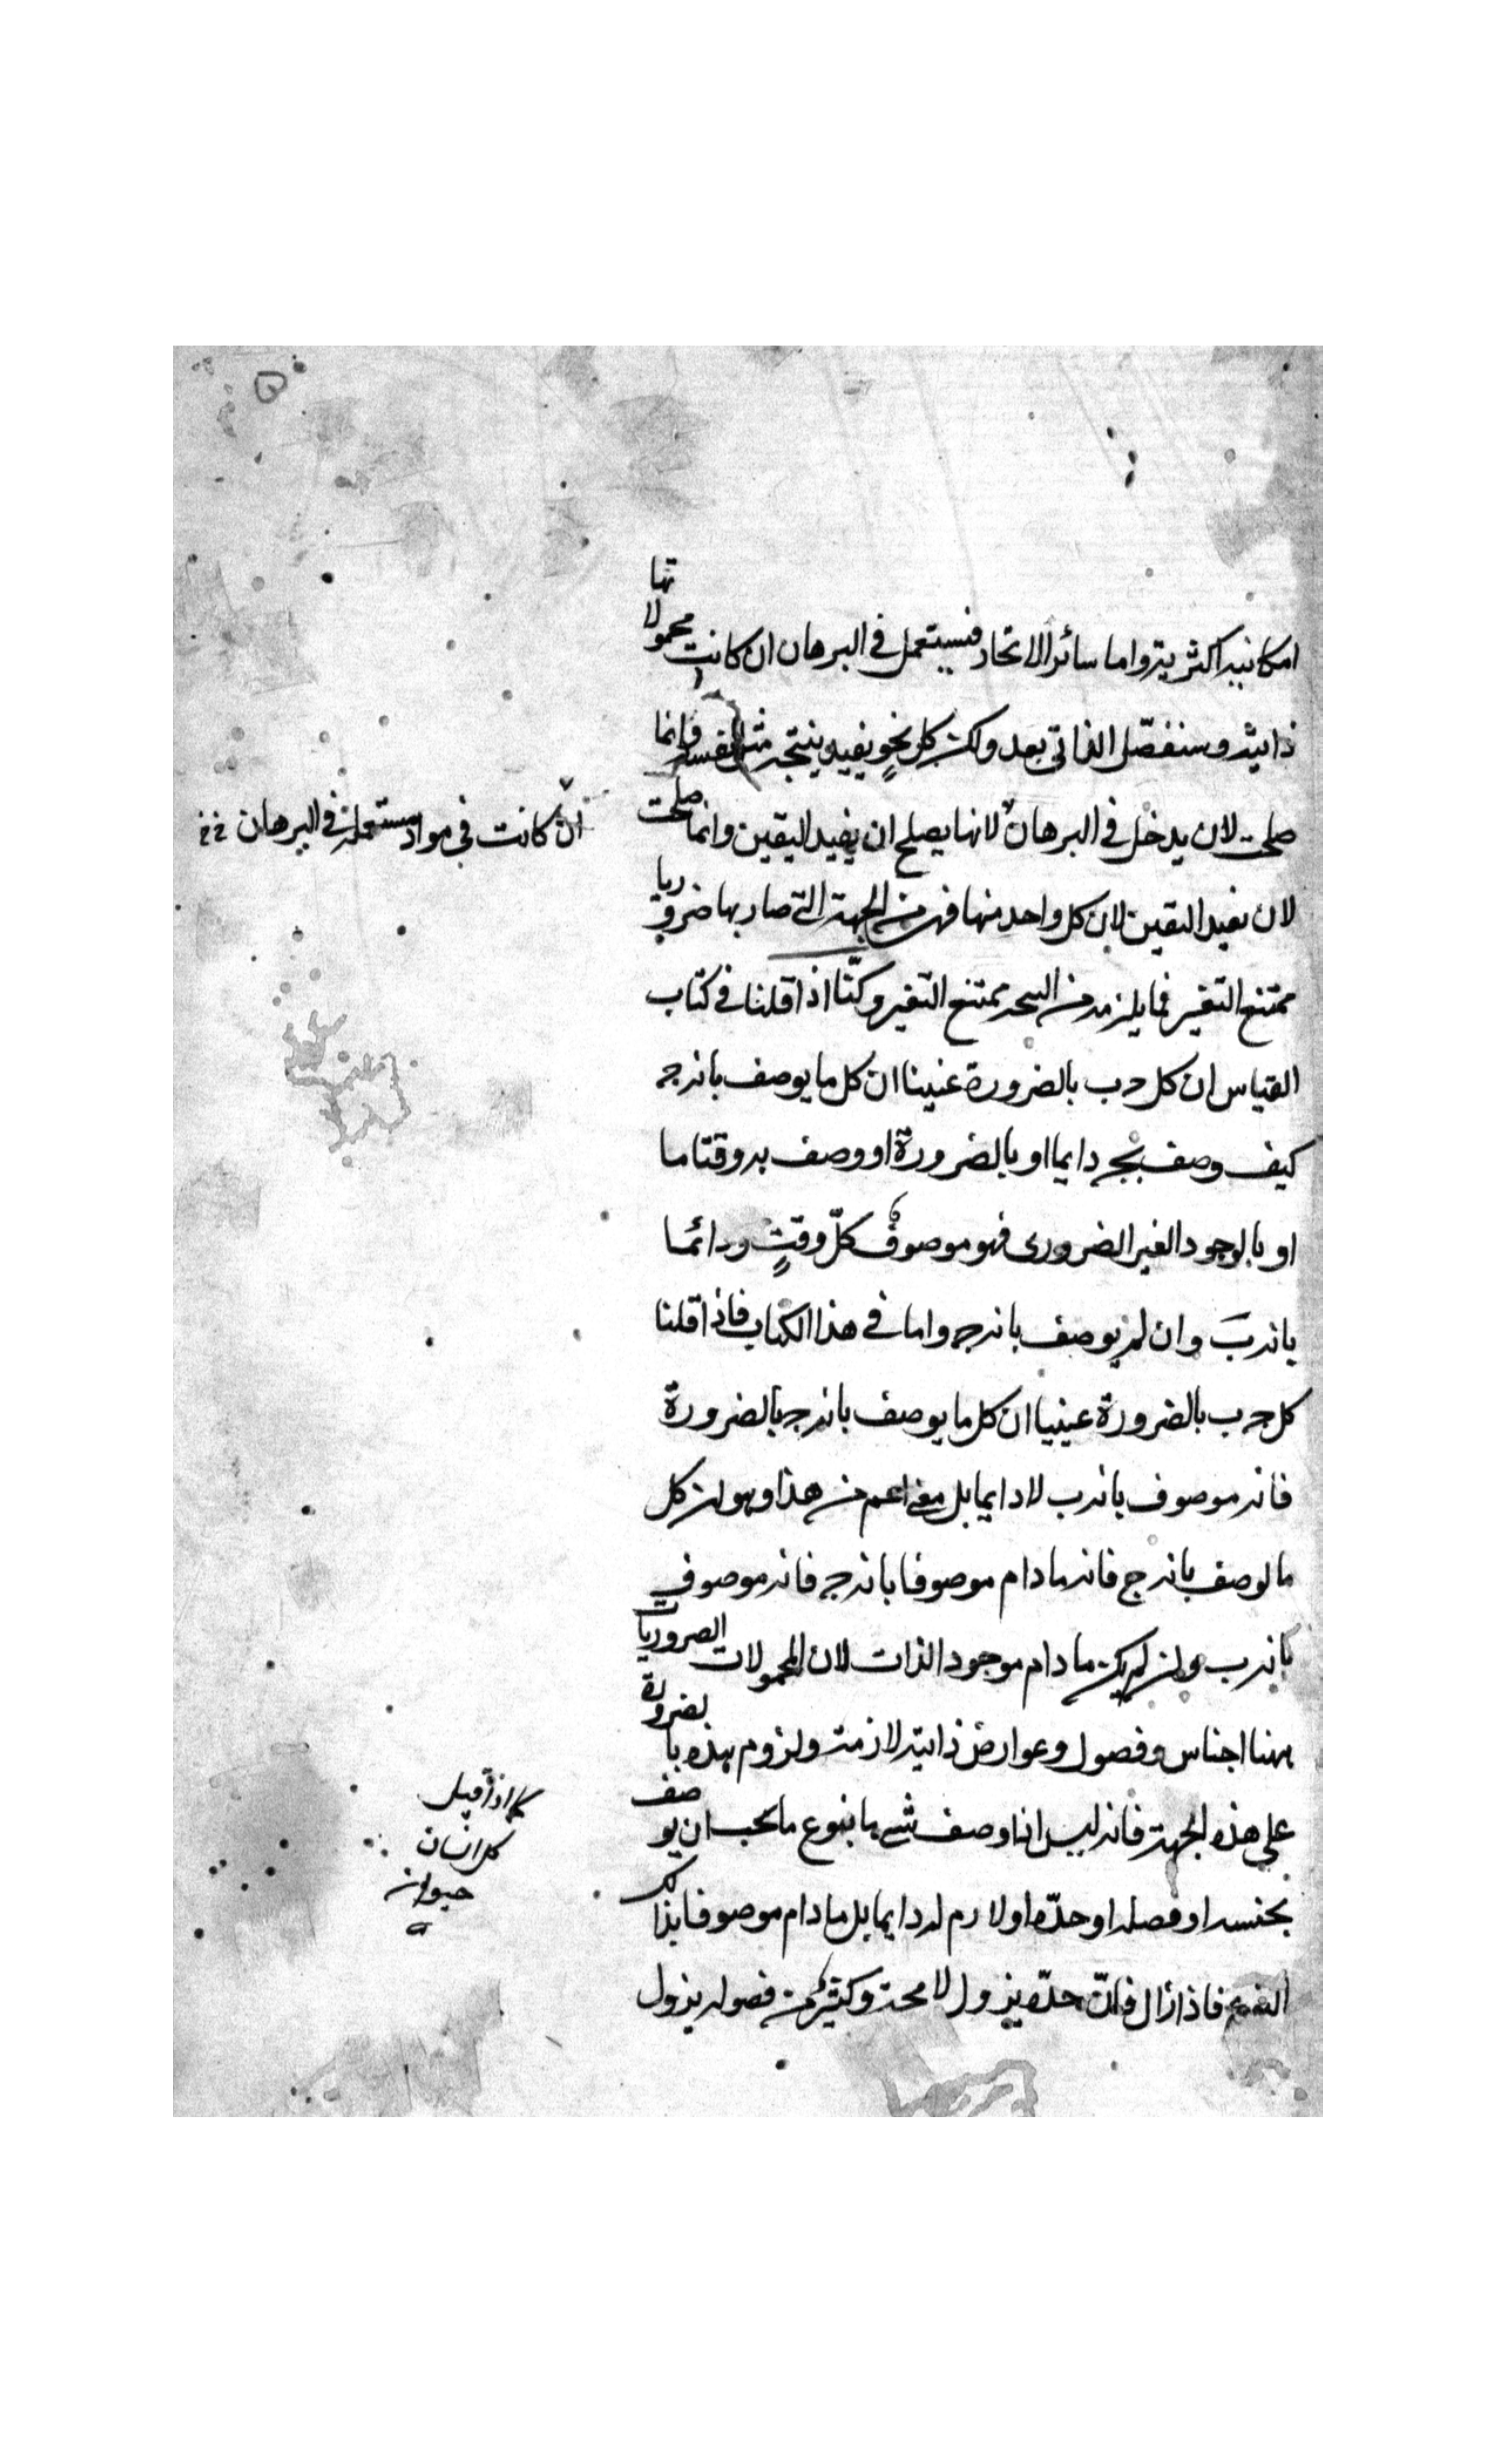 امكانيه اكثريته واما سائر الاتحاد فيستعمل في البرهان ان كانت محمولاتها
ذاتيه وسنفصّل الذاتي بعد ولكن كل نحوٍ يفيد نتيجه مثل نفسه وانما
صلحت لان يدخل في البرهان لانها يصلح ان يفيد اليقين وانما صلحت
ان كانت في مواد مستعملة في البرهان
لان يفيد اليقين لان كل واحد منها فهو من الجهة التي صار بها ضروريا
ممتنع التغير فما يلزمه من النتيجه ممتنع التغير وكنّا اذا قلنا في كتاب
القياس ان كل ج ب بالضرورة عنينا ان كل ما يوصف بانه ج
كيف وصف بج دايما او بالضرورة او وصف به وقتا ما
او بالوجود الغير الضروري فهو موصوف كلّ وقتٍ ودائما
بانه ب وان لم يوصف بانه ج واما في هذا الكتاب فاذا قلنا
كل ج ب بالضرورة عنينا ان كل ما يوصف بانه ج بالضرورة
فانه موصوف بانه ب لا دايما بل معنى اعم من هذا وهو ان كل
ما يوصف بانه ج فانه ما دام موصوفا بانه ج فانه موصوف
بانه ب وان لم يكن ما دام موجود الذات لان المحمولات الضروريات
ههنا اجناس وفصول وعوارض ذاتية لازمة ولزوم هذه بالضرورة
على هذه الجهة فانه ليس اذا وصف شي بانبوع ما يجب ان يوصف
كما اذا قيل
كل انسان
حيوان
بجنسه او فصله او حدّه او لازم له دايما بل ما دام موصوفا بذلك
النوع فاذا زال فانّ حدّه يزول لا محة وكثير من فصوله يزول